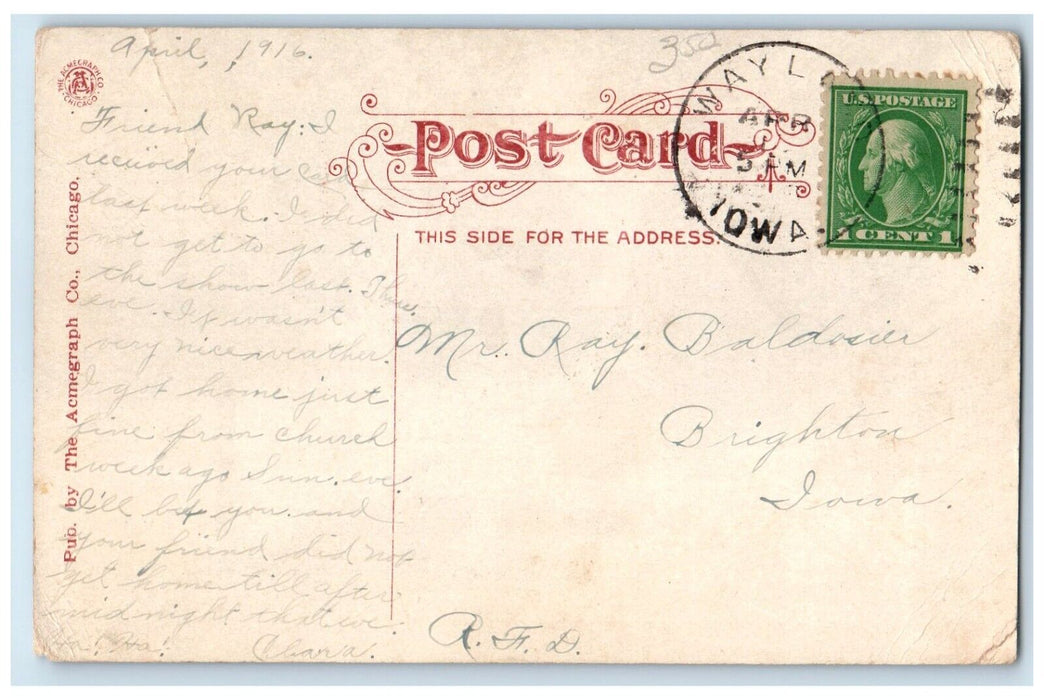 April, 1916.
350
THE ACMEGRAPH CO.
CHICAGO
Friend Ray: I
received your card
last week. I did
not get to go to
the show last Thur.
eve. It wasn't
very nice weather.
I got home just
fine from church
week ago Sun. eve.
I'll bet you and
your friend did not
get home till after
midnight that eve.
Ha! Ha! Clara.
Pub. by The Acmegraph Co., Chicago.
Post Card
THIS SIDE FOR THE ADDRESS.
WAYL
APR
M
IOWA
U.S. POSTAGE
1 CENT 1
Mr. Ray. Baldosier
Brighton
Iowa.
R. F. D.